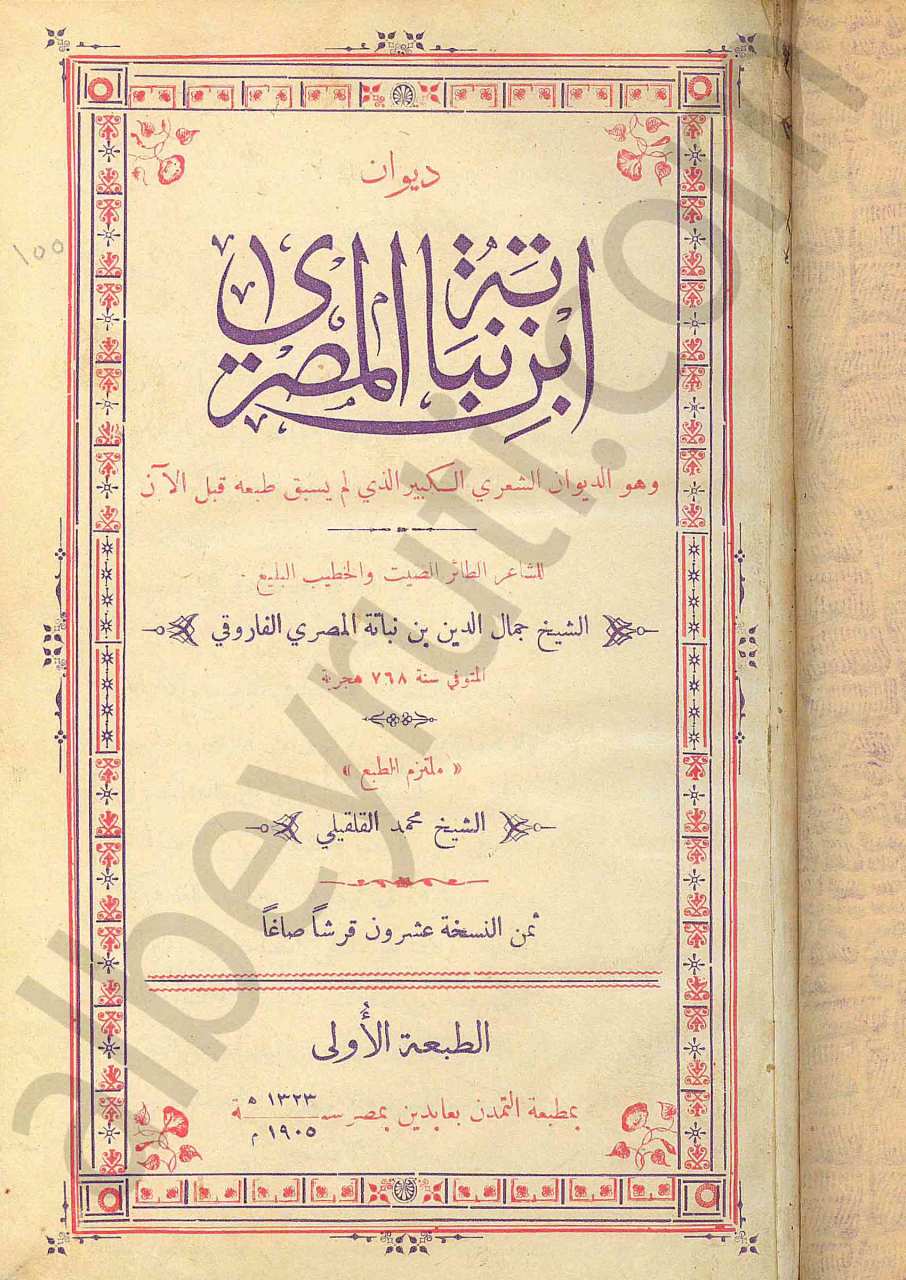 ديوان
ابن نباتة المصري
وهو الديوان الشعري الكبير الذي لم يسبق طبعه قبل الآن
للشاعر الطائر الصيت والخطيب البليغ
الشيخ جمال الدين بن نباتة المصري الفاروقي
المتوفي سنة ٧٦٨ هجرية
« ملتزم الطبع »
الشيخ محمد القلقيلي
ثمن النسخة عشرون قرشاً صاغاً
الطبعة الأُولى
بمطبعة التمدن بعابدين بمصر سنة ١٣٢٣ ه
١٩٠٥ م
١٠٠
albeyruti.com